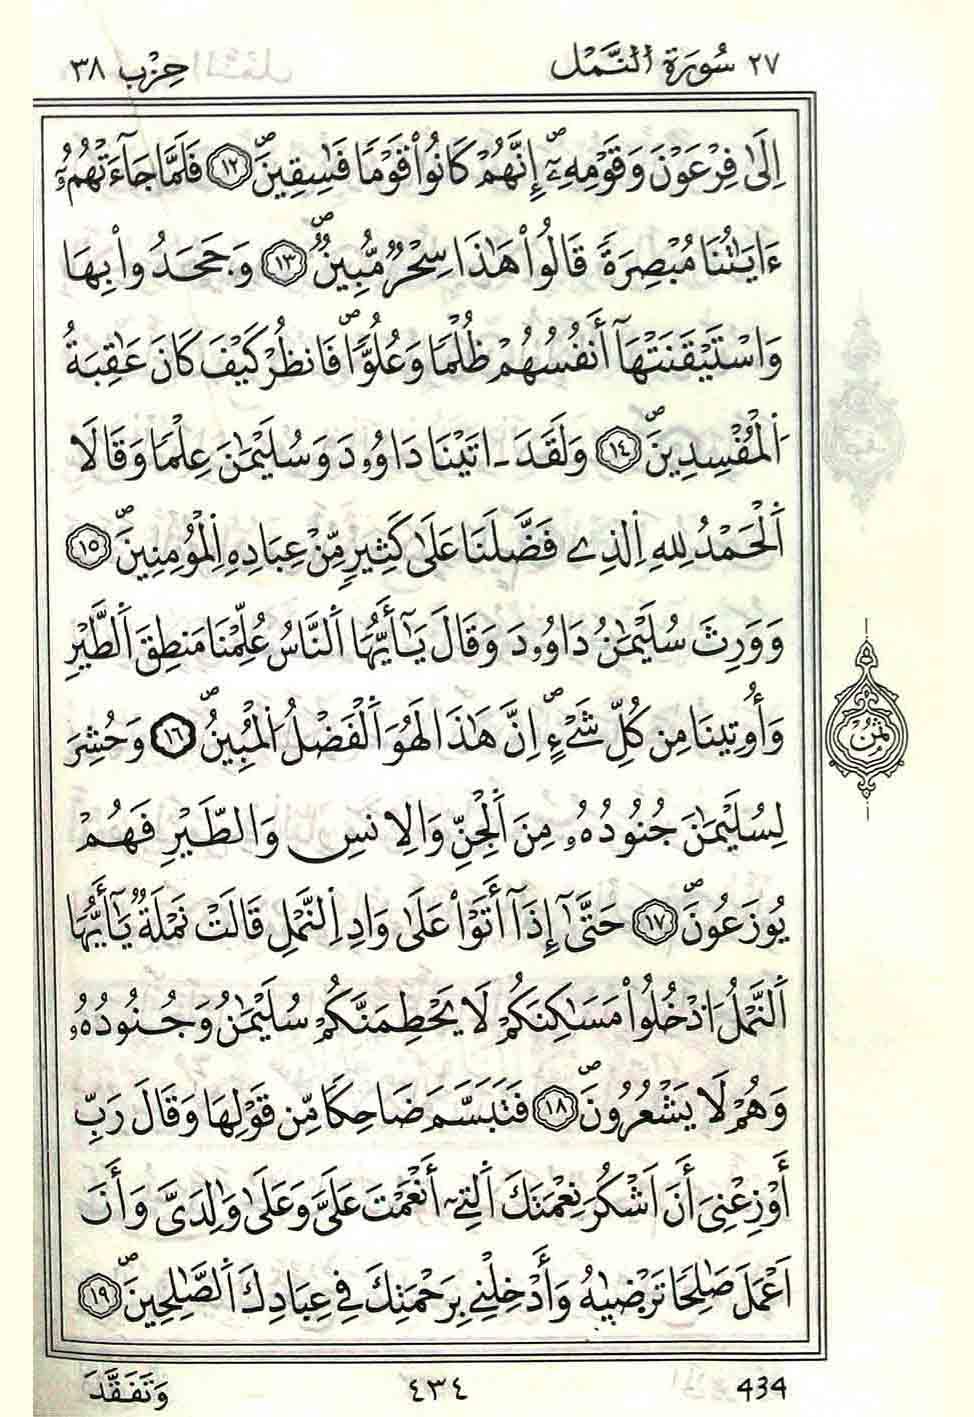 ٢٧ سُورَةُ النَّمْلِ حِزْب ٣٨
إِلَىٰ فِرْعَوْنَ وَقَوْمِهِۦٓ إِنَّهُمْ كَانُواْ قَوْماٗ فَٰسِقِينَۖ ١٢ فَلَمَّا جَآءَتْهُمُۥٓ
ءَايَٰتُنَا مُبْصِرَةٗ قَالُواْ هَٰذَا سِحْرٞ مُّبِينٞۖ ١٣ وَجَحَدُواْ بِهَا
وَاسْتَيْقَنَتْهَآ أَنفُسُهُمْ ظُلْماٗ وَعُلُوّاٗۖ فَانظُرْ كَيْفَ كَانَ عَٰقِبَةُ
اُ۬لْمُفْسِدِينَۖ ١٤ وَلَقَدَ اٰتَيْنَا دَاوُۥدَ وَسُلَيْمَٰنَ عِلْماٗ وَقَالَا
اَ۬لْحَمْدُ لِلهِ اِ۬لذِے فَضَّلَنَا عَلَىٰ كَثِيرٖ مِّنْ عِبَادِهِ اِ۬لْمُؤْمِنِينَۖ ١٥
وَوَرِثَ سُلَيْمَٰنُ دَاوُۥدَ وَقَالَ يَٰٓأَيُّهَا اَ۬لنَّاسُ عُلِّمْنَا مَنطِقَ اَ۬لطَّيْرِ
وَأُوتِينَا مِن كُلِّ شَےْءٍۖ اِنَّ هَٰذَا لَهُوَ اَ۬لْفَضْلُ اُ۬لْمُبِينُۖ ١٦ وَحُشِرَ
ثُمُن
لِسُلَيْمَٰنَ جُنُودُهُۥ مِنَ اَ۬لْجِنِّ وَالِانسِ وَالطَّيْرِ فَهُمْ
يُوزَعُونَۖ ١٧ حَتَّىٰٓ إِذَآ أَتَوْاْ عَلَىٰ وَادِ اِ۬لنَّمْلِ قَالَتْ نَمْلَةٞ يَٰٓأَيُّهَا
اَ۬لنَّمْلُ اُ۟دْخُلُواْ مَسَٰكِنَكُمْ لَا يَحْطِمَنَّكُمْ سُلَيْمَٰنُ وَجُنُودُهُۥ
وَهُمْ لَا يَشْعُرُونَۖ ١٨ فَتَبَسَّمَ ضَاحِكاٗ مِّن قَوْلِهَا وَقَالَ رَبِّ
أَوْزِعْنِىٓ أَنَ اَشْكُرَ نِعْمَتَكَ اَ۬لتِےٓ أَنْعَمْتَ عَلَيَّ وَعَلَىٰ وَٰلِدَيَّ وَأَنَ
اَعْمَلَ صَٰلِحاٗ تَرْضَيٰهُ وَأَدْخِلْنِے بِرَحْمَتِكَ فِے عِبَادِكَ اَ۬لصَّٰلِحِينَۖ ١٩
وَتَفَقَّدَ ٤٣٤ 434